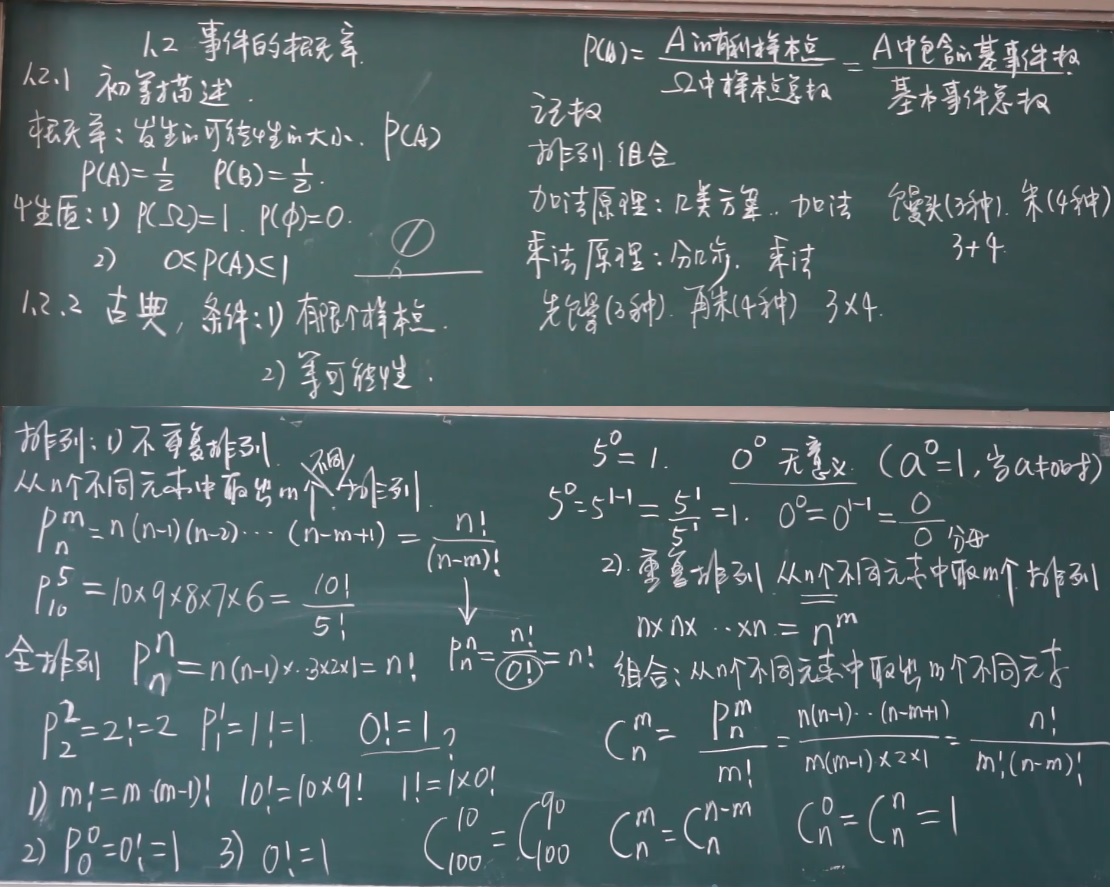 1.2 事件的概率
1.2.1 初等描述.
概率:发生的可能性的大小. P(A)
P(A)=1/2 P(B)=1/2.
性质:1) P(Ω)=1. P(φ)=0.
2) 0≤P(A)≤1
1.2.2 古典, 条件:1) 有限个样本点.
2) 等可能性.
P(A)= A的有利样本点/Ω中样本点总数 = A中包含的基本事件数/基本事件总数
计数
排列.组合
加法原理:几类方案.. 加法 馒头(3种). 米(4种)
3+4.
乘法原理:分几步. 乘法
先馒(3种). 再米(4种) 3×4.
排列:1)不重复排列.
从n个不同元素中取出m个不同排列
P_n^m = n(n-1)(n-2)···(n-m+1) = n!/(n-m)!
P_10^5 = 10×9×8×7×6 = 10!/5!
全排列 P_n^n = n(n-1)×··3×2×1 = n! P_n^n = n!/0! = n!
P_2^2 = 2! = 2 P_1^1 = 1! = 1. 0! = 1?
1) m! = m·(m-1)! 10! = 10×9! 1! = 1×0!
2) P_0^0 = 0! = 1 3) 0! = 1
5^0 = 1. 0^0 无意义. (a^0=1, 当a≠0时)
5^0 = 5^{1-1} = 5^1/5^1 = 1. 0^0 = 0^{1-1} = 0/0 分母
2). 重复排列 从n个不同元素中取m个排列
n×n×··×n. = n^m
组合:从n个不同元素中取出m个不同元素
C_n^m = P_n^m/m! = n(n-1)··(n-m+1)/m(m-1)×2×1 = n!/m!(n-m)!
C_100^10 = C_100^90 C_n^m = C_n^{n-m} C_n^0 = C_n^n = 1